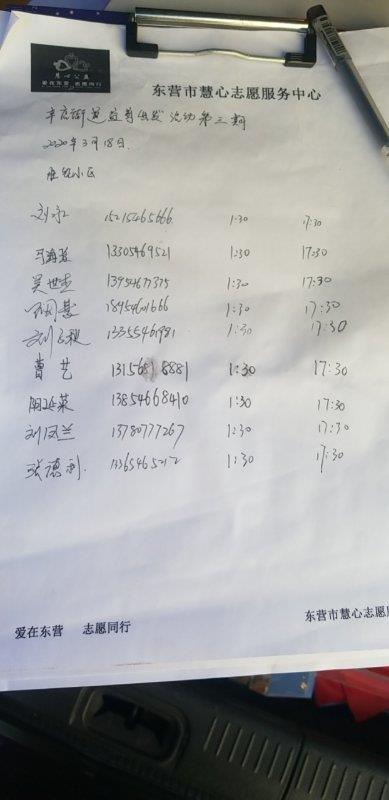 慧心公益
爱在东营 志愿同行
东营市慧心志愿服务中心
街道 出发 活动第三期
2020年3月18日.
小区
刘永 15215465666 1:30 17:30
13305469521 1:30 17:30
吴世杰 13954677375 1:30 17:30
1:30 17:30
刘 13355546981 1:30 17:30
曹艺 131568 8881 1:30 17:30
13854668410 1:30 17:30
刘凤兰 13780777267 1:30 17:30
张德利. 13365465212 1:30 17:30
爱在东营 志愿同行
东营市慧心志愿